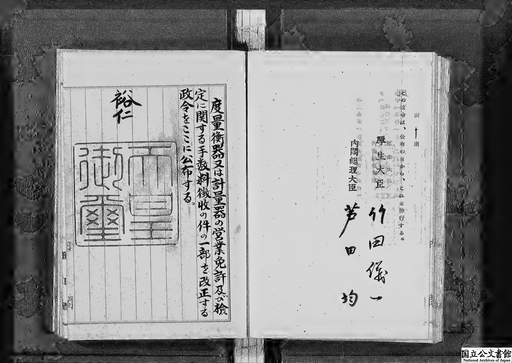 この政令は、公布の日から、これを施行する。
厚生大臣 竹田儀一
内閣総理大臣 芦田均
度量衡器又は計量器の営業免許及び検
定に関する手数料徴収の件の一部を改正する
政令をここに公布する。
裕仁
天皇
御璽
国立公文書館
National Archives of Japan